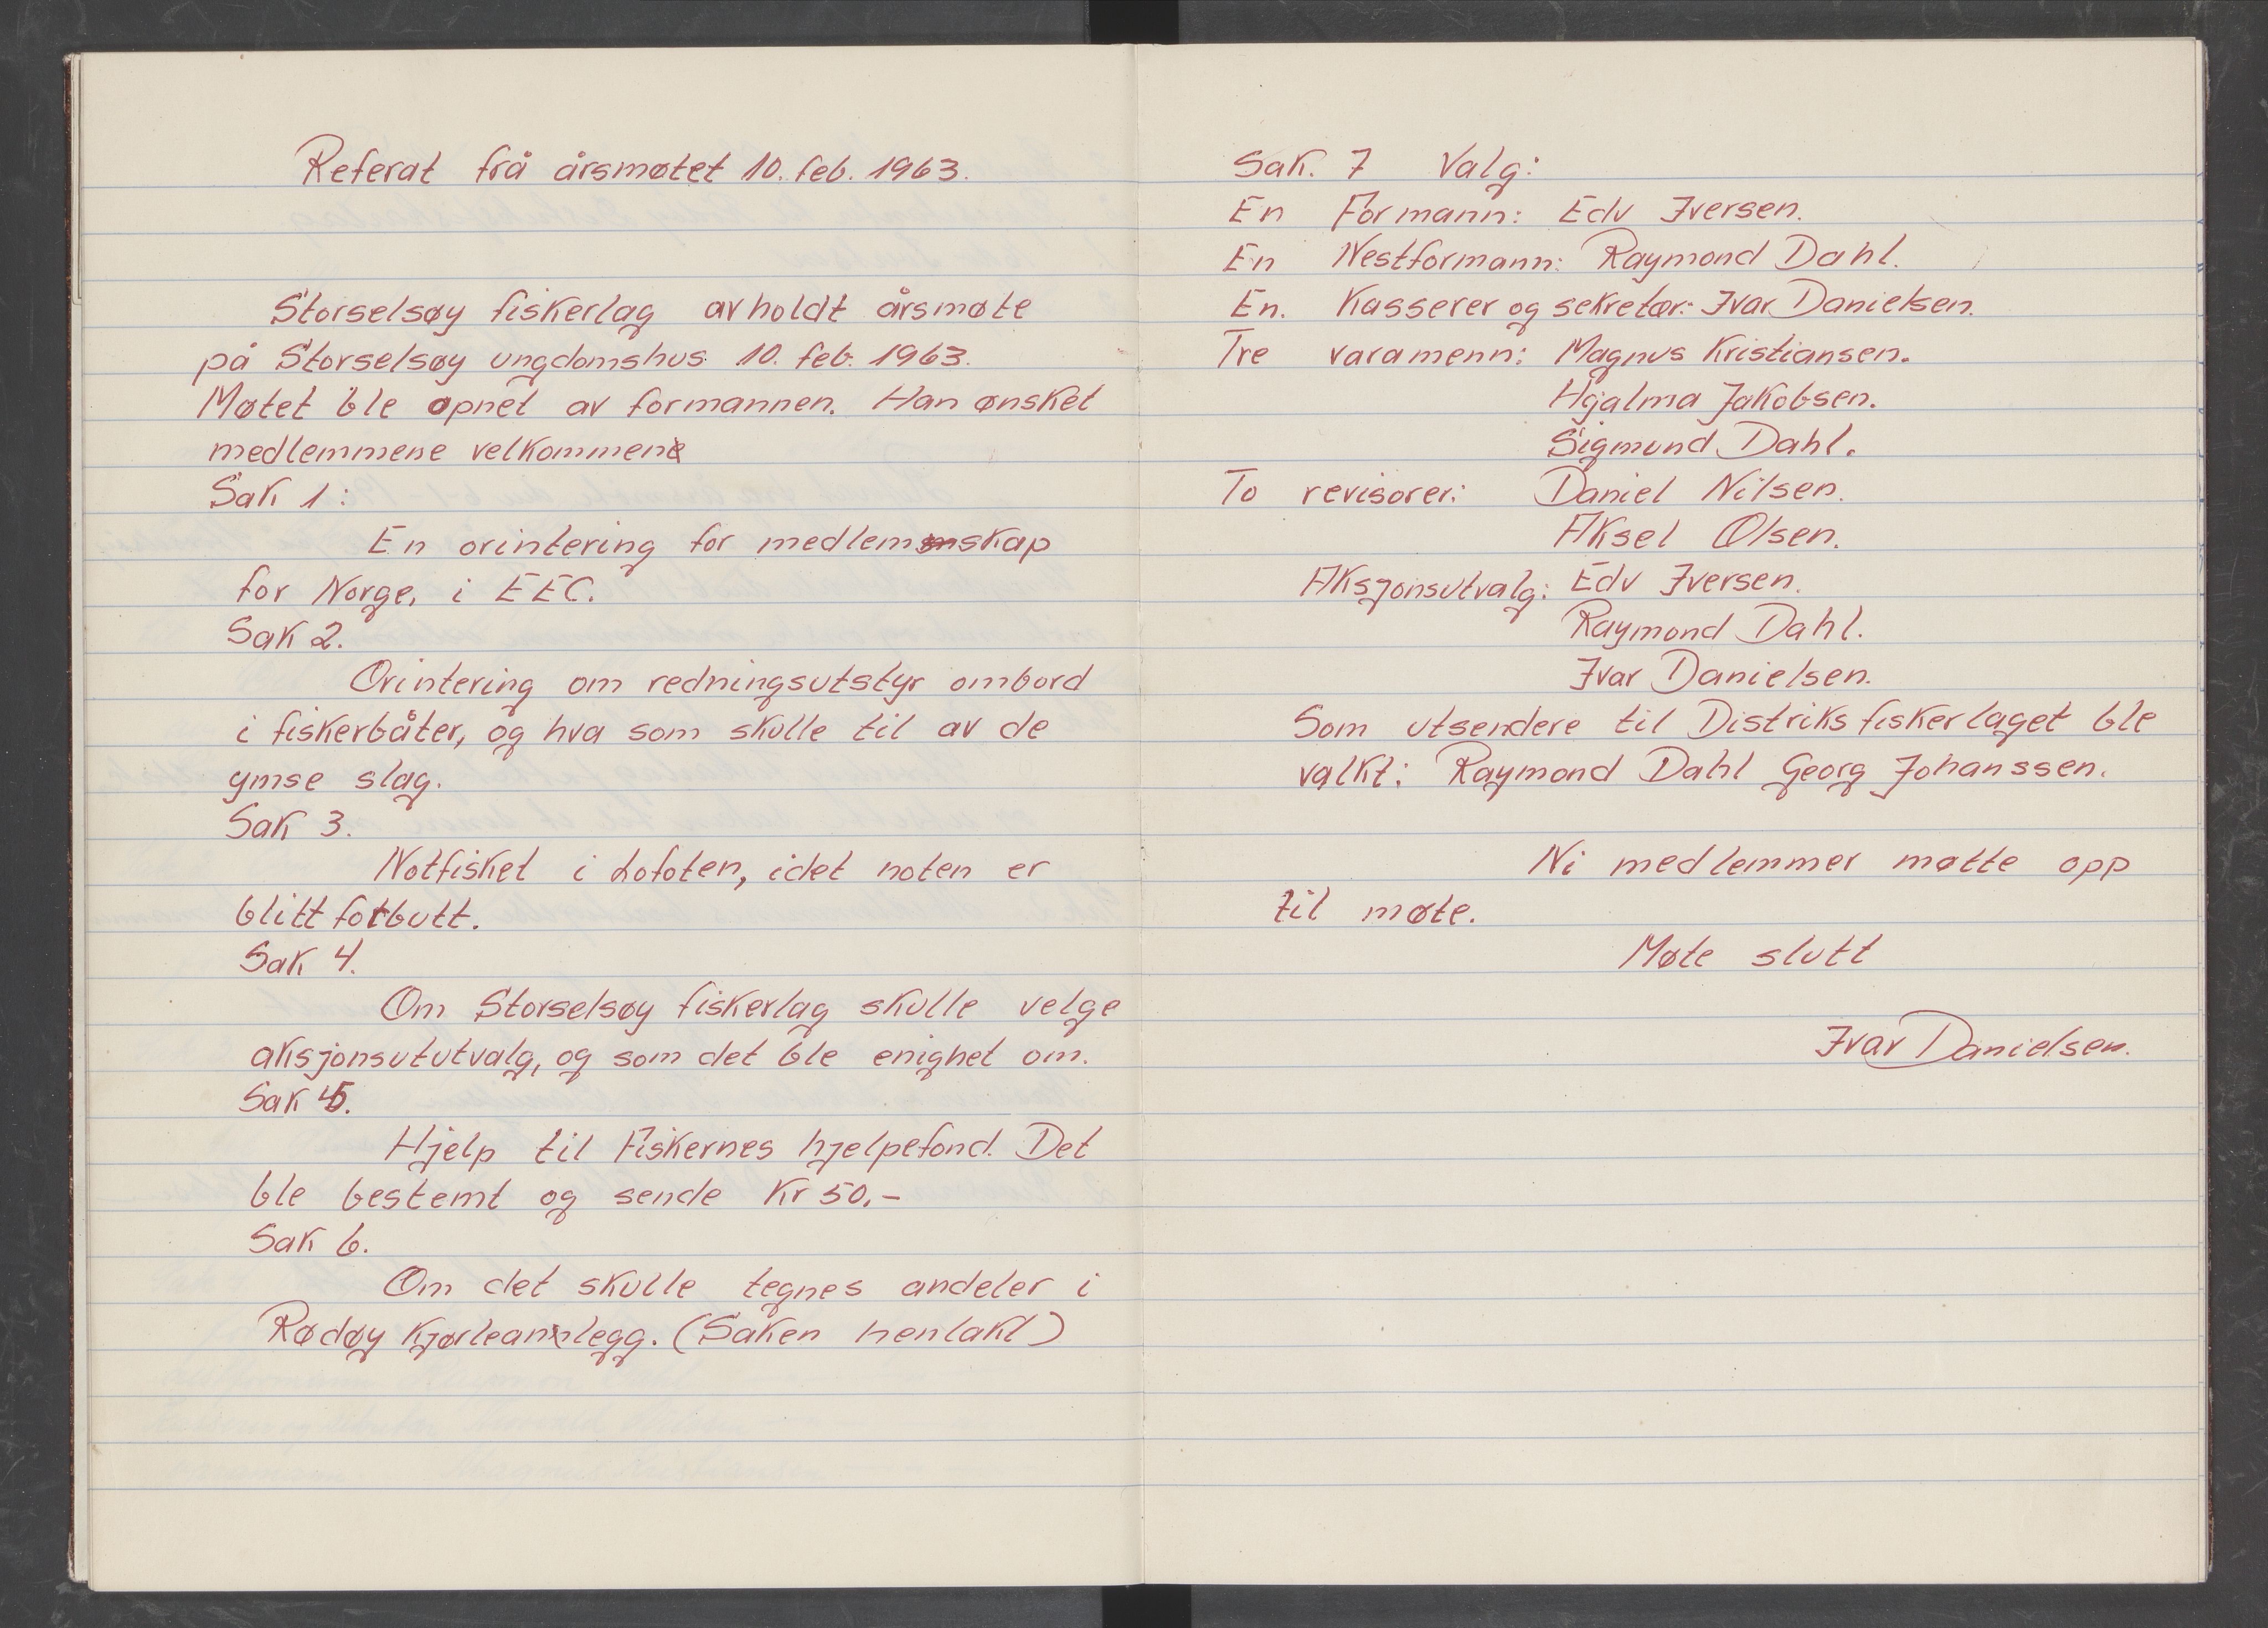 Referat frå årsmøtet 10. feb. 1963.
Storselsøy fiskerlag avholdt årsmøte
på Storselsøy ungdomshus 10. feb. 1963.
Møtet ble opnet av formannen. Han ønsket
medlemmene velkommen
Sak 1:
En orintering for medlemskap
for Norge, i EEC.
Sak 2.
Orintering om redningsutstyr ombord
i fiskerbåter, og hva som skulle til av de
ymse slag.
Sak 3.
Notfisket i Lofoten, idet noten er
blitt forbutt.
Sak 4.
Om Storselsøy fiskerlag skulle velge
aksjonsututvalg, og som det ble enighet om.
Sak 5.
Hjelp til Fiskernes hjelpefond. Det
ble bestemt og sende Kr 50.-
Sak 6.
Om det skulle tegnes andeler i
Rødøy Kjørleanlegg. (Saken henlakt)
Sak. 7 Valg:
En Formann: Edv Iversen.
En Nestformann: Raymond Dahl.
En. Kasserer og sekretær: Ivar Danielsen.
Tre varamenn: Magnus Kristiansen.
Hjalma Jakobsen.
Sigmund Dahl.
To revisorer: Daniel Nilsen.
Aksel Olsen.
Aksjonsutvalg: Edv Iversen.
Raymond Dahl.
Ivar Danielsen.
Som utsendere til Distriksfiskerlaget ble
valkt: Raymond Dahl Georg Johanssen.
Ni medlemmer møtte opp
til møte.
Møte slutt
Ivar Danielsen.